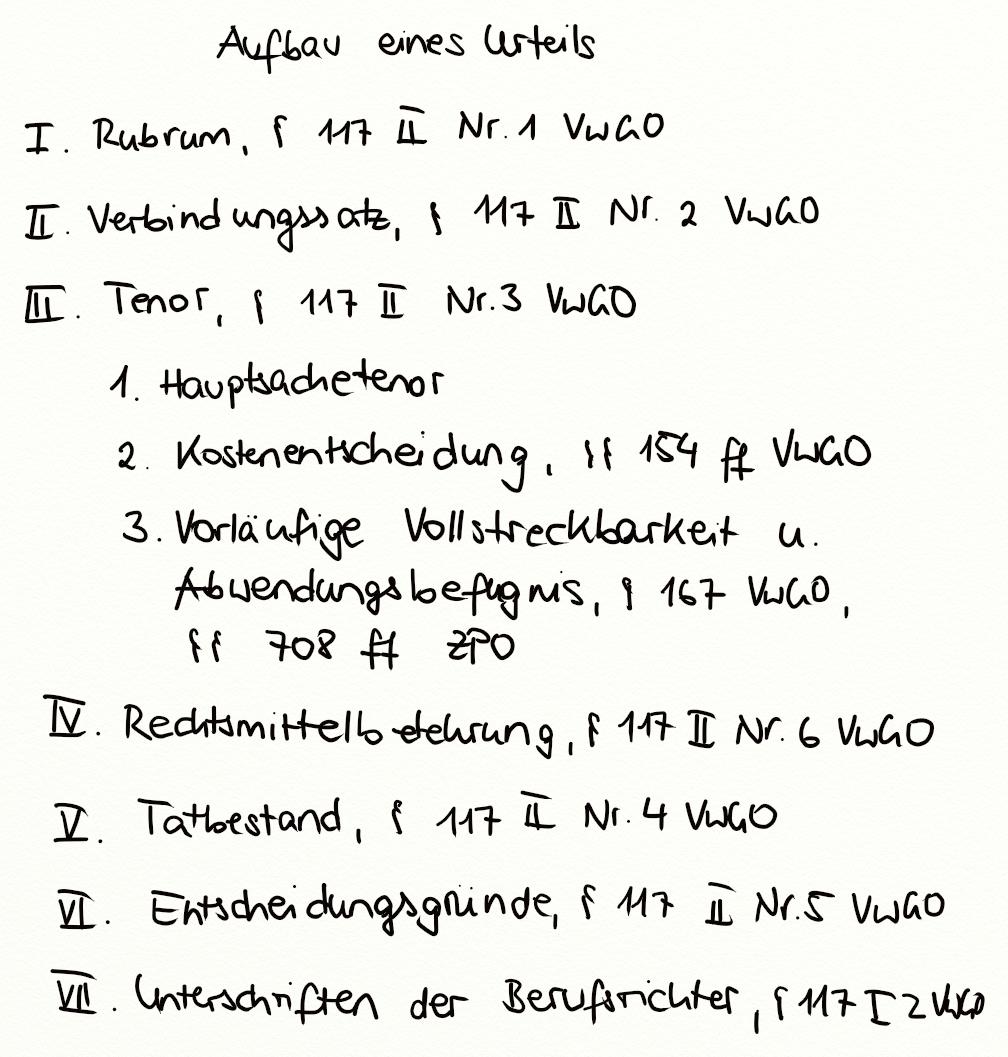 Aufbau eines Urteils
I. Rubrum, § 117 II Nr. 1 VwGO
II. Verbindungssatz, § 117 II Nr. 2 VwGO
III. Tenor, § 117 II Nr. 3 VwGO
1. Hauptsachetenor
2. Kostenentscheidung, §§ 154 ff VwGO
3. Vorläufige Vollstreckbarkeit u.
Abwendungsbefugnis, § 167 VwGO,
§§ 708 ff ZPO
IV. Rechtsmittelbelehrung, § 117 II Nr. 6 VwGO
V. Tatbestand, § 117 II Nr. 4 VwGO
VI. Entscheidungsgründe, § 117 II Nr. 5 VwGO
VII. Unterschriften der Berufsrichter, § 117 I 2 VwGO